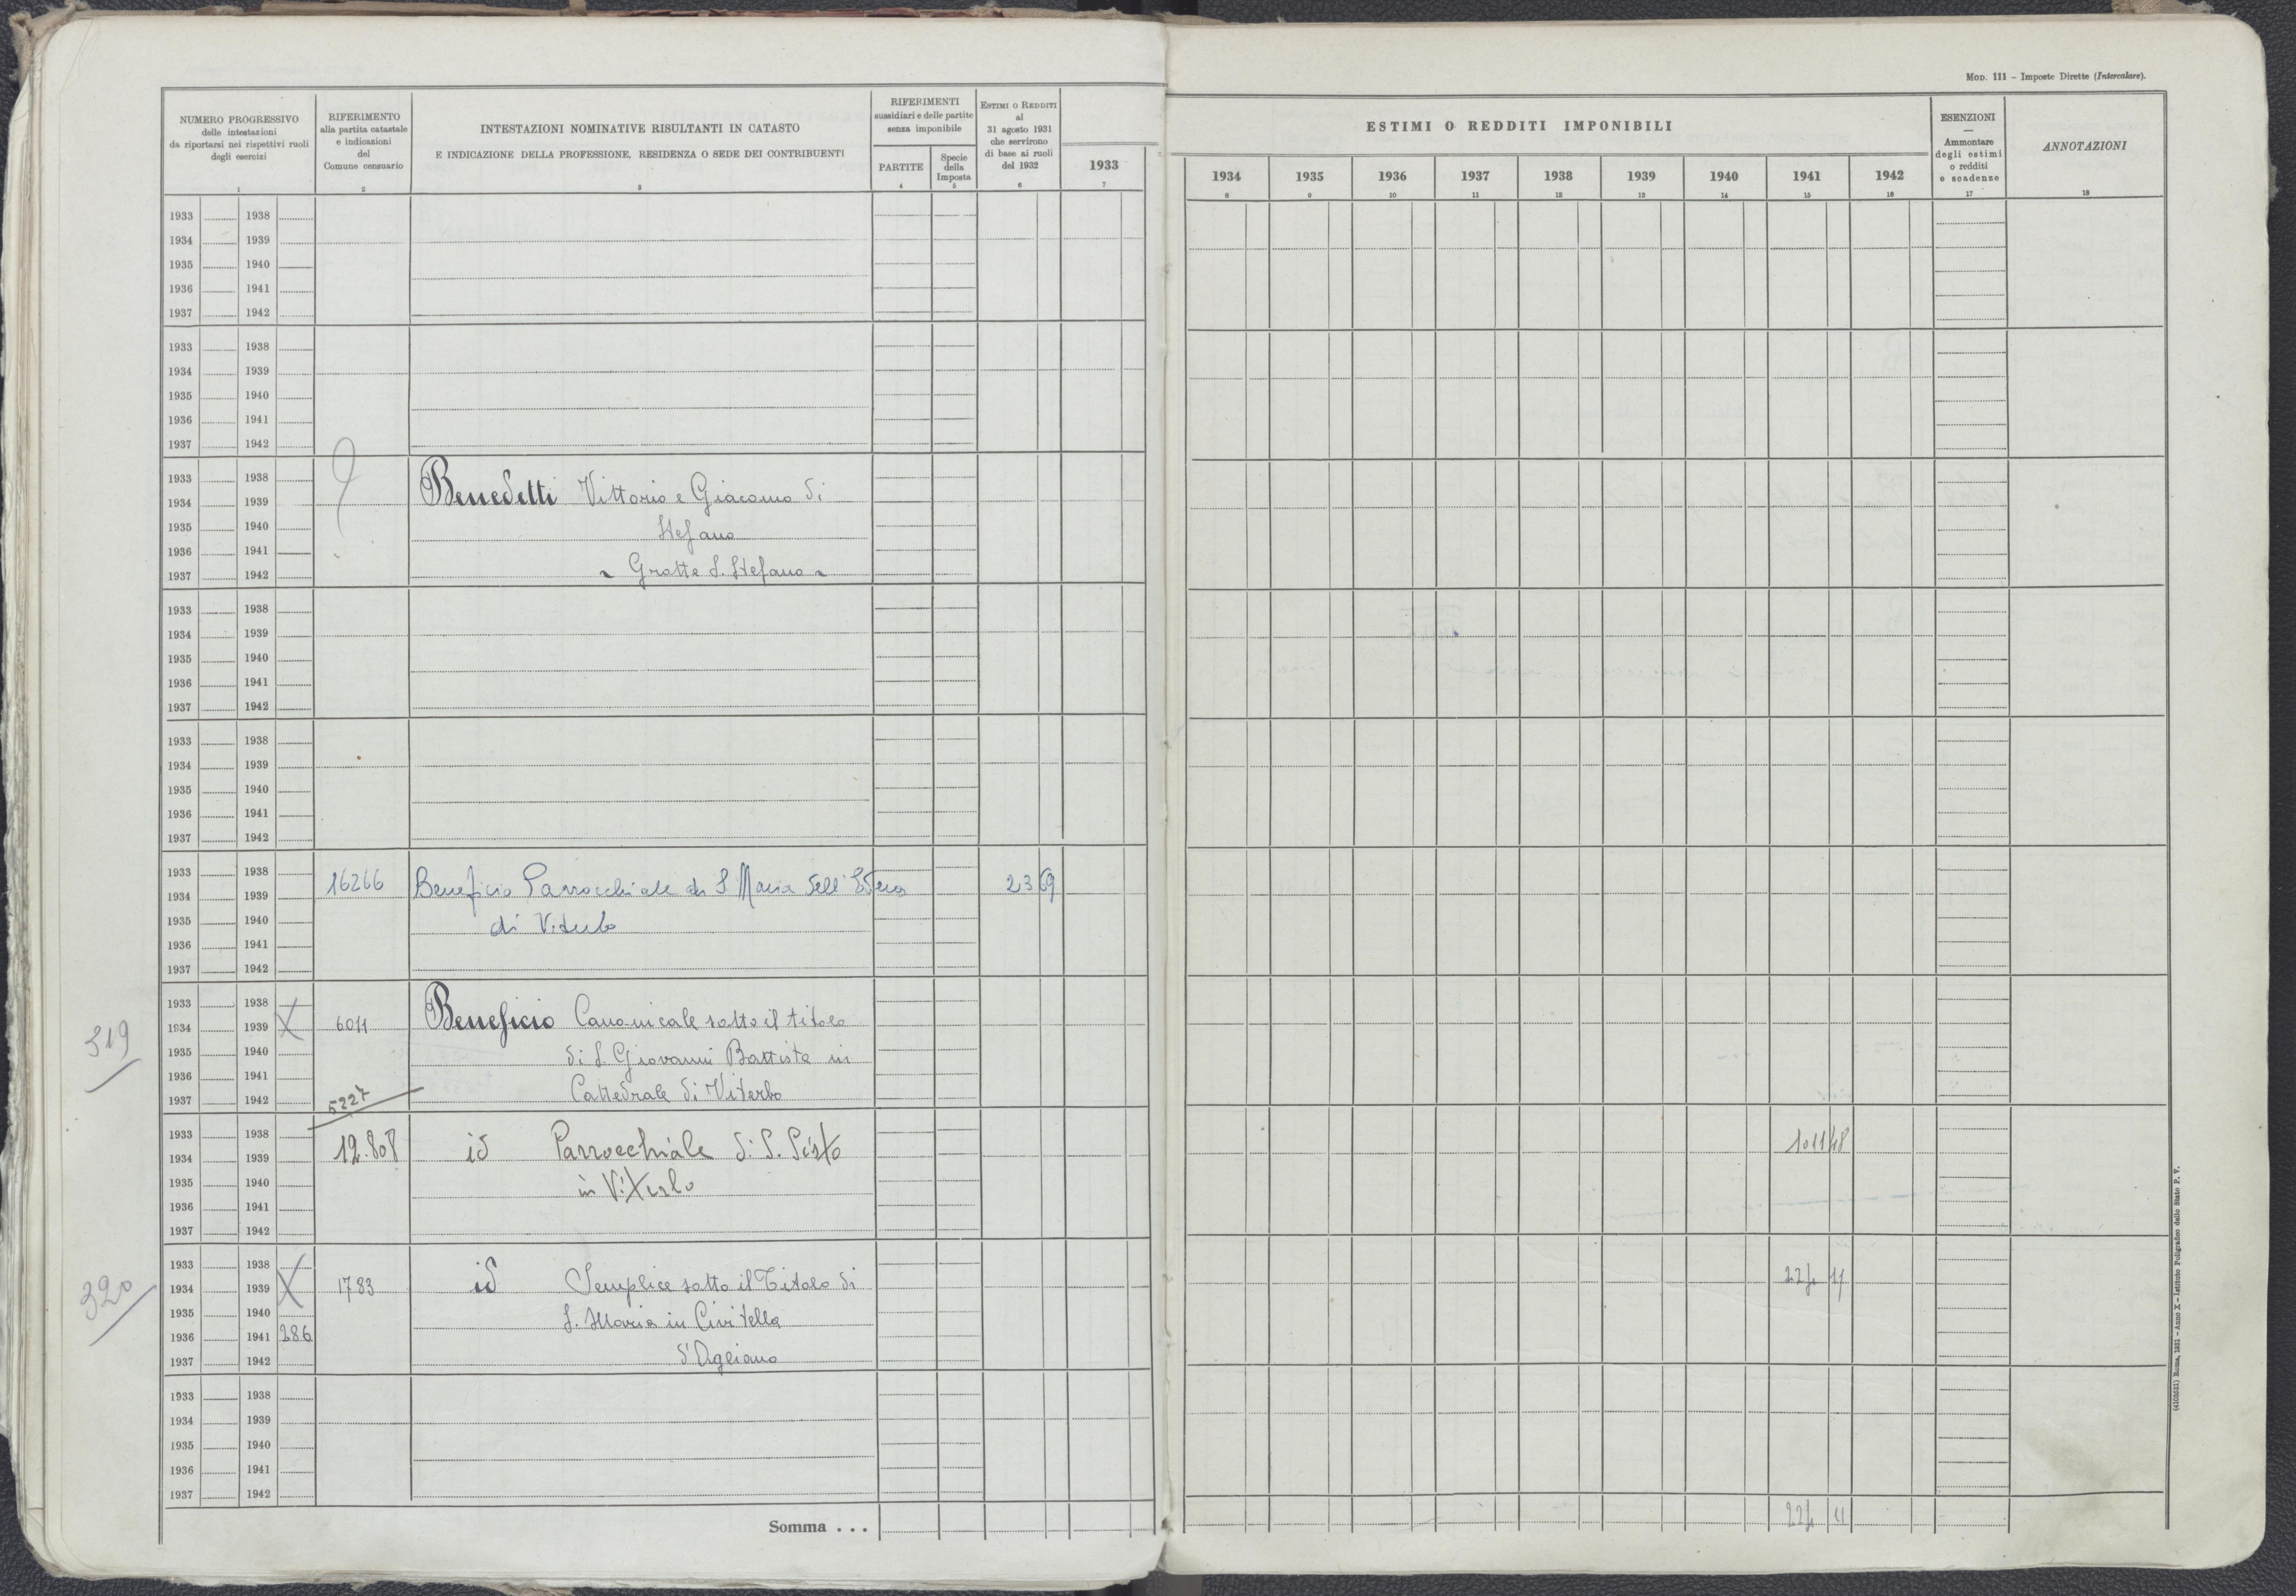 MOD. 111 – Imposte Dirette (Intercalare).
NUMERO PROGRESSIVO
delle intestazioni
da riportarsi nei rispettivi ruoli
degli esercizi
1
RIFERIMENTO
alla partita catastale
e indicazioni
del
Comune censuario
2
INTESTAZIONI NOMINATIVE RISULTANTI IN CATASTO
E INDICAZIONE DELLA PROFESSIONE, RESIDENZA O SEDE DEI CONTRIBUENTI
3
RIFERIMENTI
sussidiari e delle partite
senza imponibile
PARTITE
4
Specie
della
Imposta
5
ESTIMI O REDDITI
al
31 agosto 1931
che servirono
di base ai ruoli
del 1932
6
1933
7
ESTIMI O REDDITI IMPONIBILI
1934 1935 1936 1937 1938 1939 1940 1941 1942
8 9 10 11 12 13 14 15 16
ESENZIONI
—
Ammontare
degli estimi
o redditi
e scadenze
17
ANNOTAZIONI
18
1933 1938
1934 1939
1935 1940
1936 1941
1937 1942
1933 1938
1934 1939
1935 1940
1936 1941
1937 1942
1933 1938
1934 1939 Benedetti Vittorio e Giacomo di
1935 1940 Stefano
1936 1941
1937 1942 Grotte S. Stefano
1933 1938
1934 1939
1935 1940
1936 1941
1937 1942
1933 1938
1934 1939
1935 1940
1936 1941
1937 1942
1933 1938
1934 1939 16266 Beneficio Parrocchiale di S Maria dell' Edera 23 69
1935 1940 di Viterbo
1936 1941
1937 1942
1933 1938
1934 1939 X 6011 Beneficio Canonicale sotto il titolo
319
1935 1940 di S. Giovanni Battista in
1936 1941
1937 1942 5227 Cattedrale di Viterbo
1933 1938
1934 1939 12.808 id Parrocchiale di S. Sisto 1011 48
1935 1940 in Viterbo
1936 1941
1937 1942
1933 1938
1934 1939 X 1783 id Semplice sotto il Titolo di
320
1935 1940
1936 1941 286 S. Maria in Civitella
1937 1942 d'Agliano
1933 1938
1934 1939
1935 1940
1936 1941
1937 1942
Somma . . .
(4103531) Roma, 1931 - Anno X - Istituto Poligrafico dello Stato P. V.